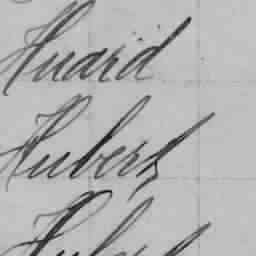 Huard
Hubert